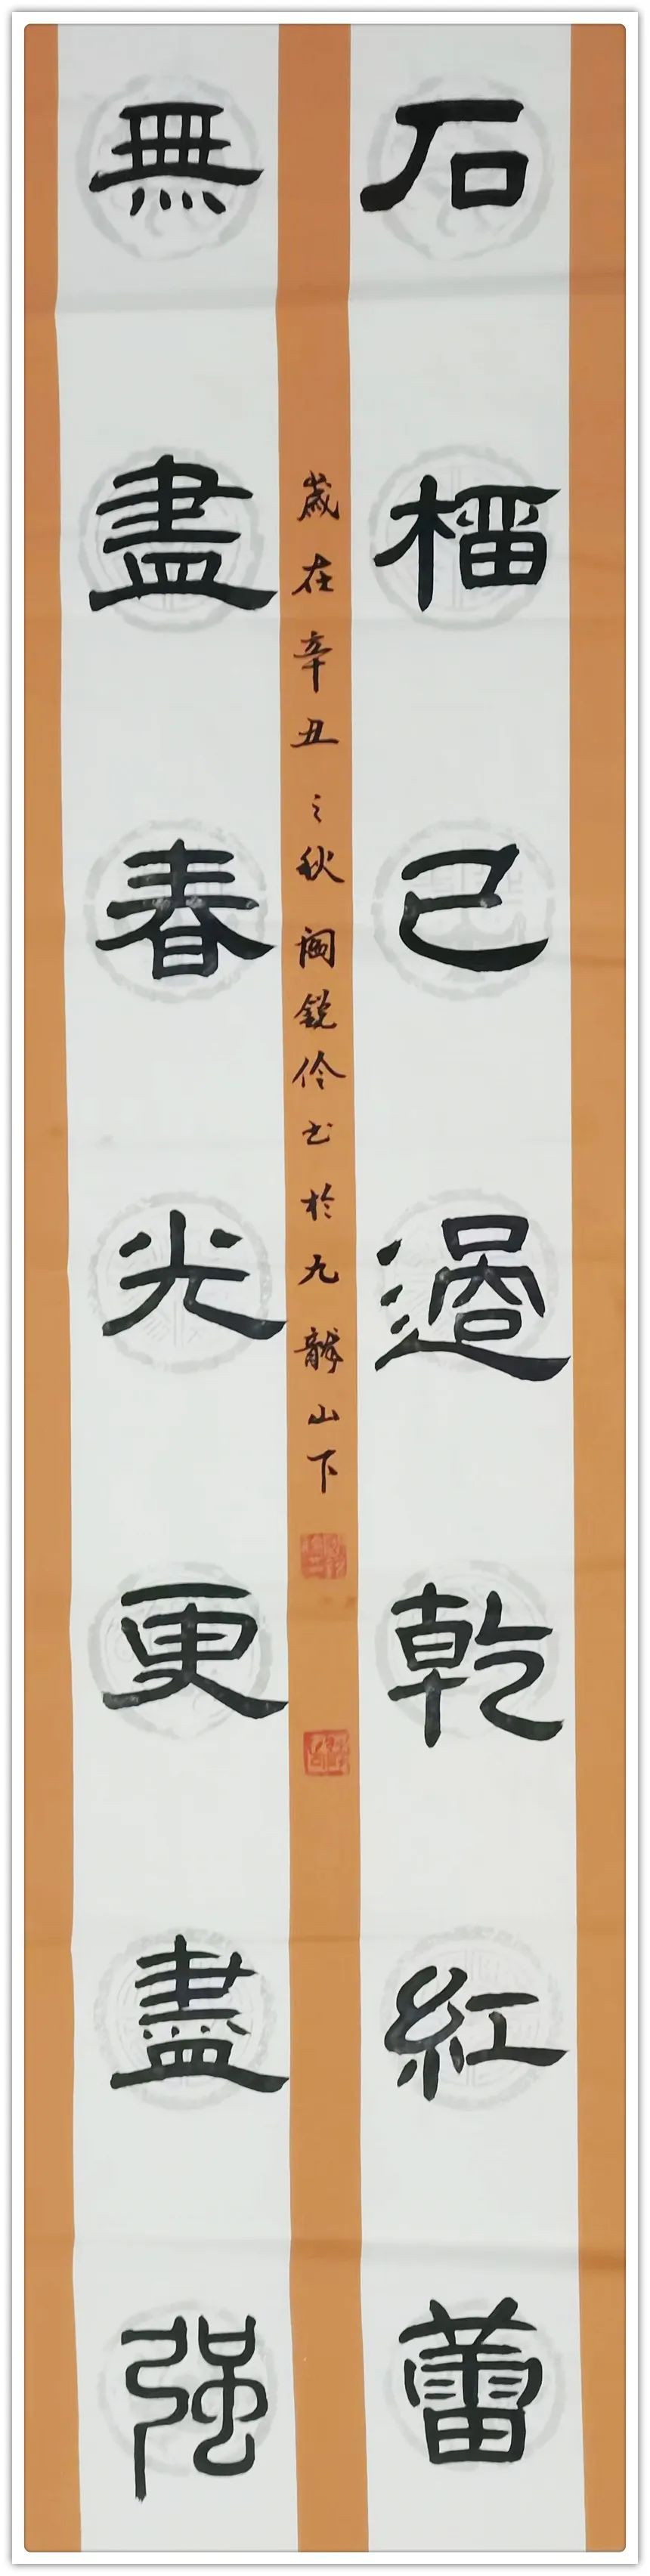 石榴已過乾紅蕾
無盡春光更盡強
歲在辛丑之秋阚銳伶书於九龍山下